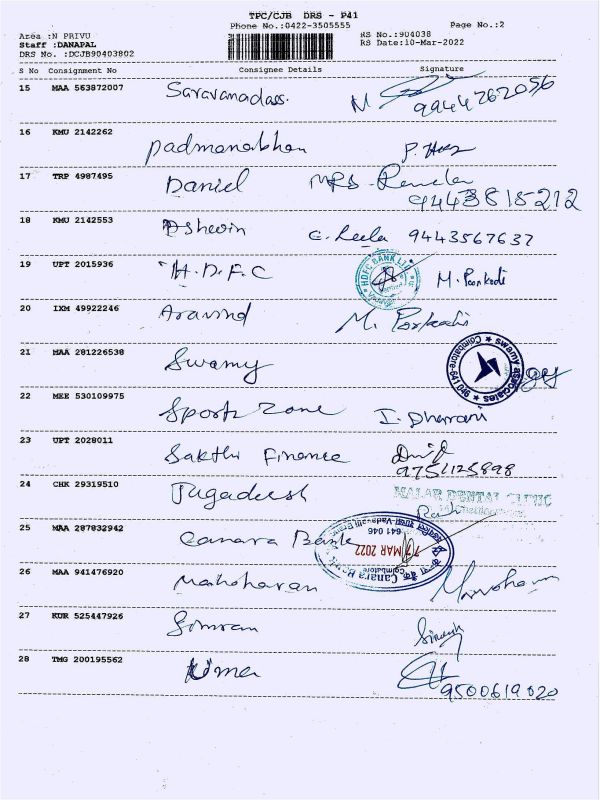 TPC/CJB DRS - P41
Phone No.:0422-3505555 Page No.:2
Area :N PRIVU RS No.:904038
Staff :DANAPAL RS Date:10-Mar-2022
DRS No. :DCJB90403802
S No Consignment No Consignee Details Signature
15 MAA 563872007 Saravanadass. 9944762056
16 KMU 2142262 Padmanabhan
17 TRP 4987495 Daniel MRS. 9443815212
18 KMU 2142553 Ashwin C. Leela 9443567637
19 UPT 2015936 H.D.F.C HDFC BANK LTD. M. Poonkodi
20 IXM 49922246 Aravind M. Poonkodi
21 MAA 281226538 Swamy swamy associates Coimbatore-641 046
22 MEE 530109975 Sports Zone I. Dharani
23 UPT 2028011 Sakthi Finance
9751125898
24 CHK 29319510 Jagadeesh MALAR DENTAL CLINIC
25 MAA 287832942 Canara Bank 641 046 MAR 2022 Canara Coimbatore
26 MAA 941476920 Manoharan Manoharan
27 KUR 525447926 Simran
28 TMG 200195562 Uma
9500619020